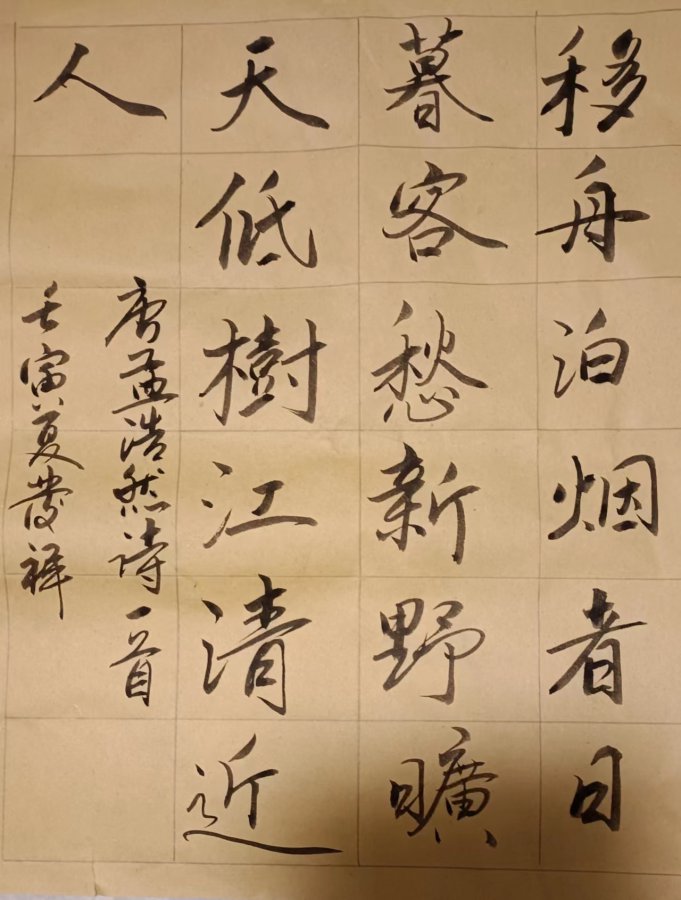 移舟泊烟者日
暮客愁新野曠
天低樹江清近
人
唐孟浩然诗一首
壬寅夏發祥